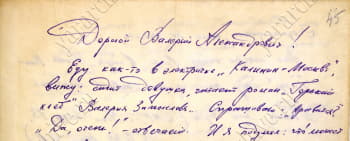 45
Дорогой Валерий Александрович!
Еду как-то в электричке „Калинин-Москва",
вижу: сидит девушка, читает роман-„Горький
квест" Валерия Спрашиваю: „Нравится?"
„Да, очень!" -отвечает. И я подумал: что может